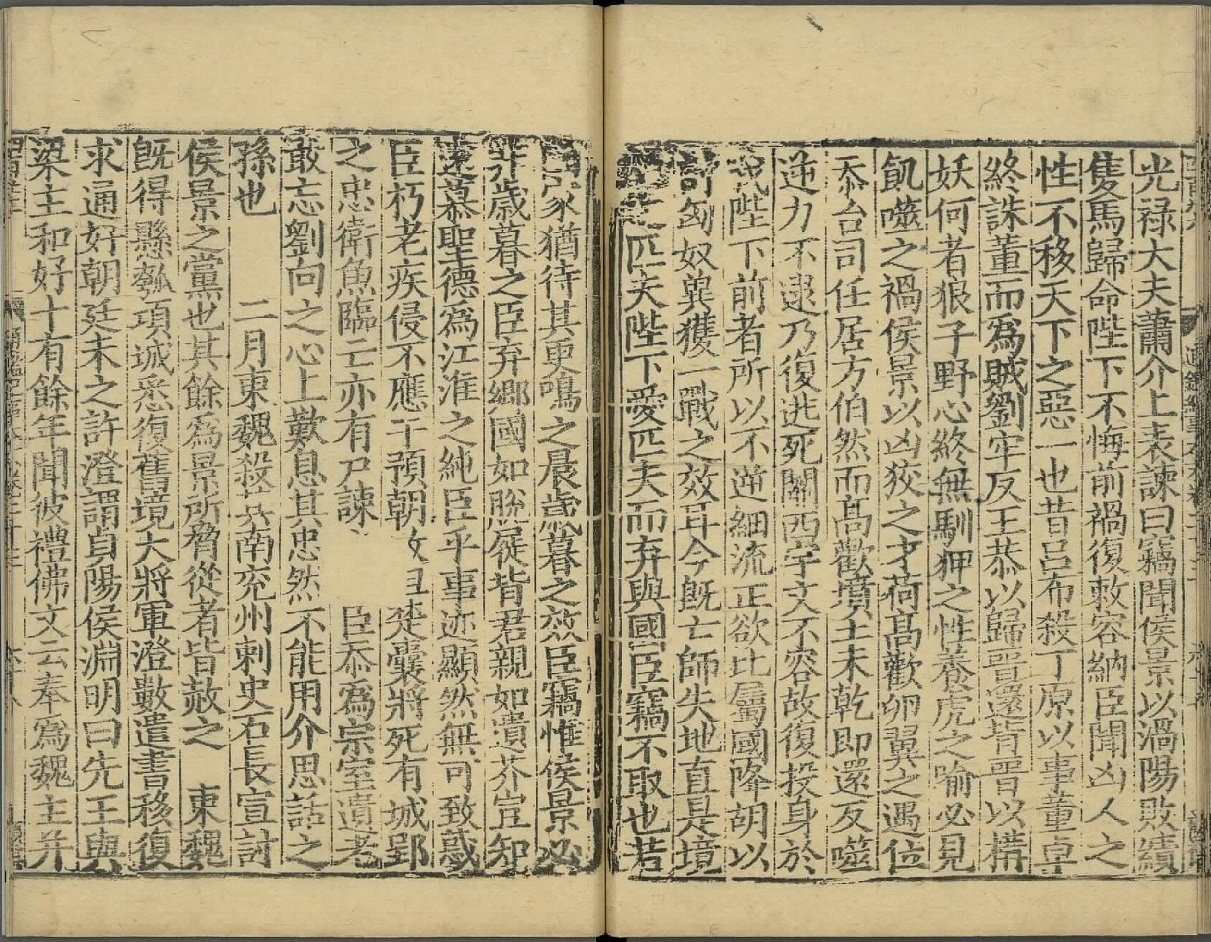 光祿大夫蕭介上表諫曰竊聞侯景以渦陽敗績
隻馬歸命陛下不悔前禍復敕容納臣聞凶人之
性不移天下之惡一也昔呂布殺丁原以事董卓
終誅董而爲賊劉牢反王恭以歸晉還背晉以構
妖何者狼子野心終無馴狎之性養虎之喻必見
飢噬之禍侯景以凶狡之才荷髙歡卵翼之遇位
忝台司任居方伯然而髙歡墳土未乾即還反噬
逆力不逮乃復逃死關西宇文不容故復投身於
我陛下前者所以不逆細流正欲比屬國降胡以
討匈奴兾獲一戰之效耳今旣亡師失地直是境
匹夫陛下愛匹夫而弃與國臣竊不取也若
國家猶待其更鳴之晨歲暮之效臣竊惟侯景必
非歲暮之臣弃鄉國如脫屣背君親如遺芥豈知
遠慕聖德爲江淮之純臣乎事迹顯然無可致惑
臣朽老疾侵不應干預朝政但楚囊將死有城郢
之忠衛魚臨亡亦有尸諫 臣忝爲宗室遺老
敢忘劉向之心上歎息其忠然不能用介思話之
孫也 二月東魏殺其南兖州刺史石長宣討
侯景之黨也其餘爲景所脅從者皆赦之 東魏
旣得懸瓠項城悉復舊境大將軍澄數遣書移復
求通好朝廷未之許澄謂貞陽侯淵明曰先王與
梁主和好十有餘年聞彼禮佛文云奉爲魏主并